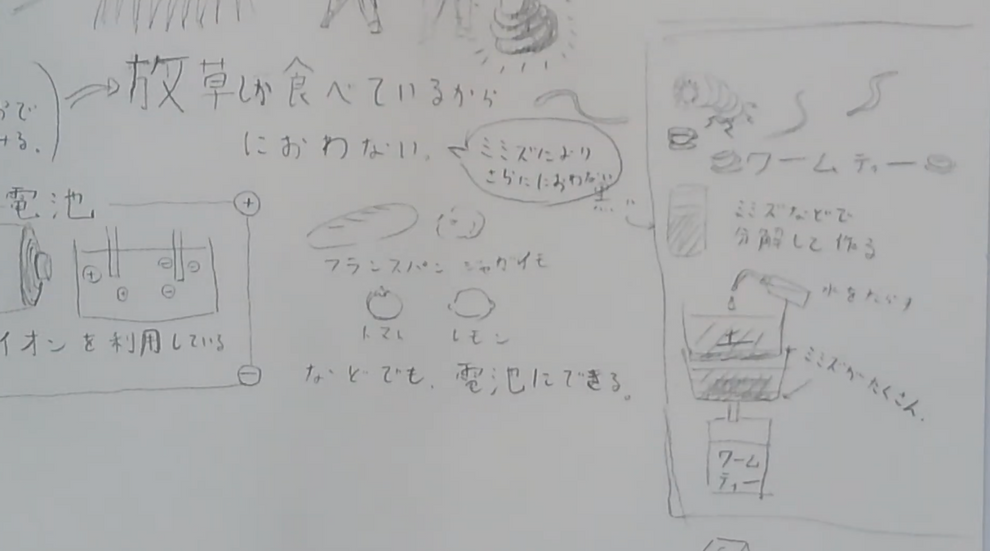 放草しか食べているから
におわない。
ミミズにより
さらににおわない
電池
イオンを利用している
フランスパン ジャガイモ
トマト レモン
などでも、電池にできる。
ワームティー
ミミズなどで
分解して作る
水をたらす
土
ミミズがたくさん.
ワーム
ティー